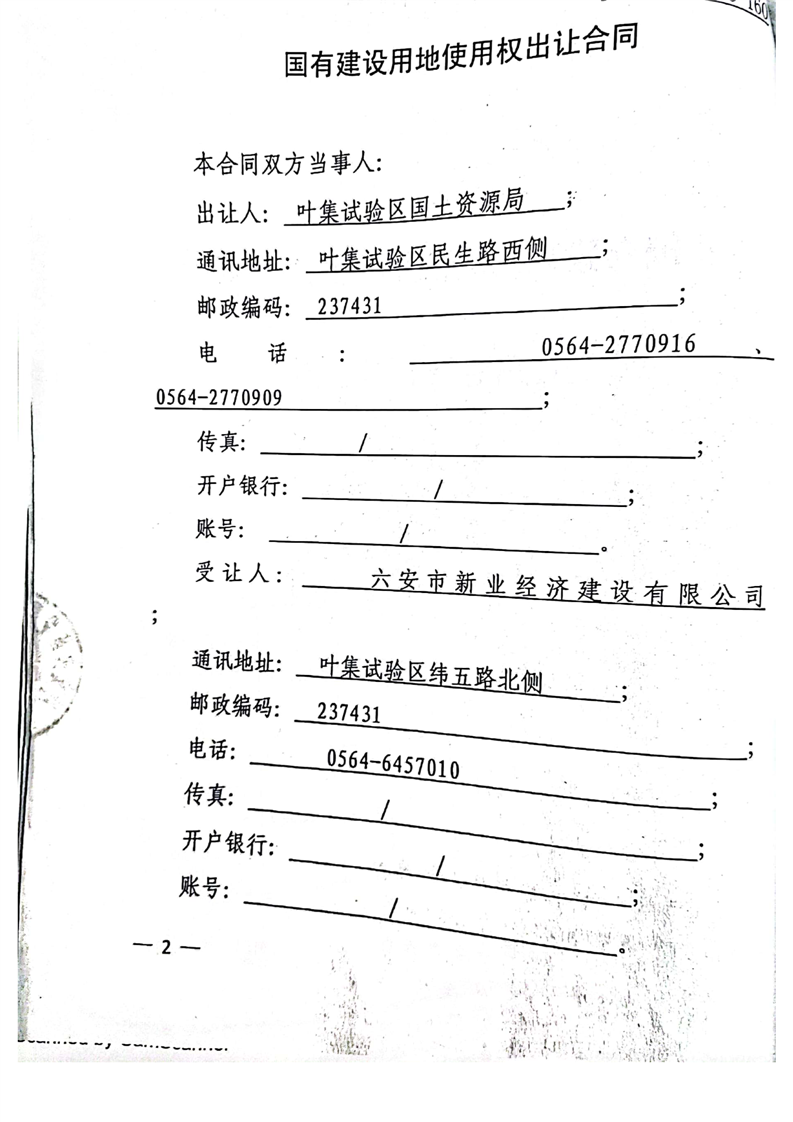 160
国有建设用地使用权出让合同
本合同双方当事人:
出让人: 叶集试验区国土资源局 ;
通讯地址: 叶集试验区民生路西侧 ;
邮政编码: 237431 ;
电 话 : 0564-2770916 、
0564-2770909 ;
传真: / ;
开户银行: / ;
账号: / 。
受让人: 六安市新业经济建设有限公司
;
通讯地址: 叶集试验区纬五路北侧 ;
邮政编码: 237431 ;
电话: 0564-6457010 ;
传真: / ;
开户银行: / ;
账号: / 。
— 2 —
Scanned by CamScanner